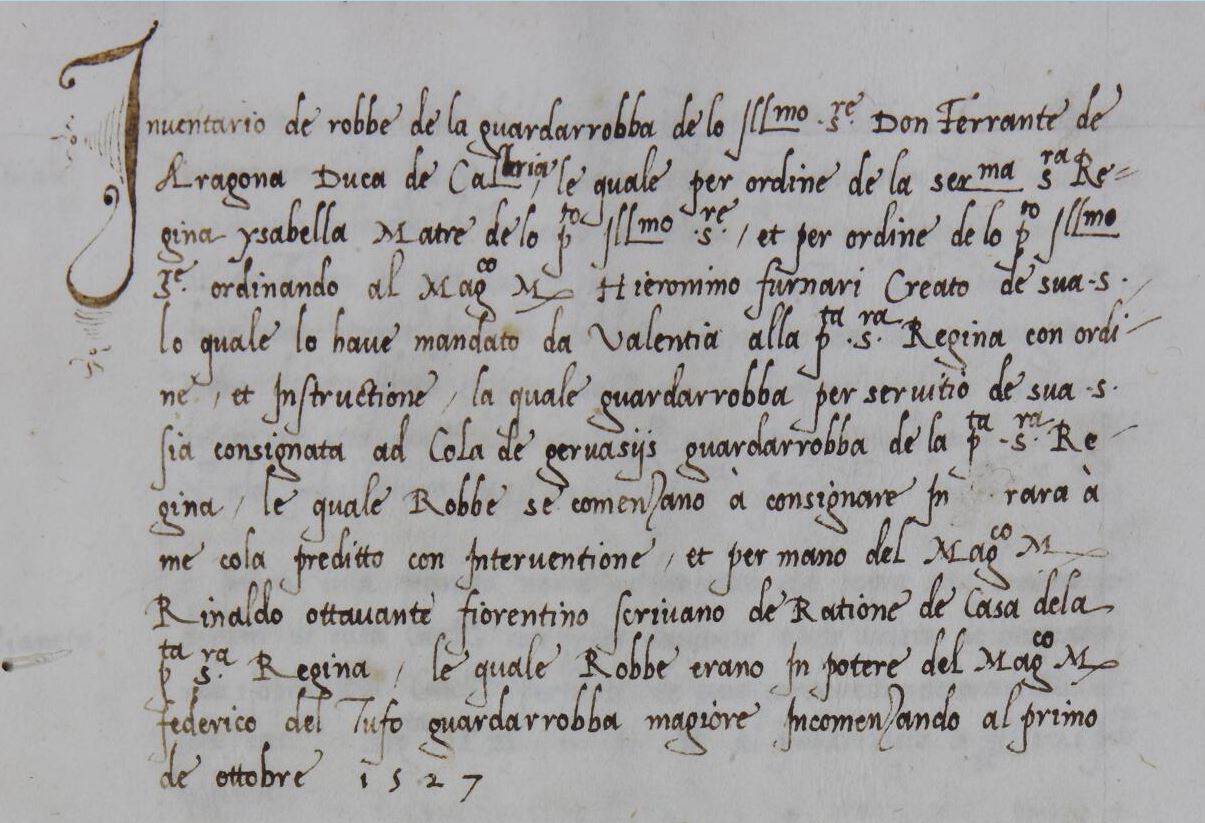 Inventario de robbe de la guardarrobba de lo Illmo .sre. Don Ferrante de
Aragona Duca de Calbria, le quale per ordine de la serma sra Re=
gina ysabella Matre de lo pto Illmo .sre. / et per ordine de lo pto Illmo
sre. ordinando al Magco M Hieronimo furnari Creato de sua .s.
lo quale lo haue mandato da Valentia alla pta .sra. Regina con ordi-
ne / et Instructione / la quale guardarrobba per seruitio de sua .s.
sia consignata ad Cola de geruasijs guardarrobba de la pta .sra. Re-
gina / le quale Robbe se comenzano à consignare In rara à
me cola preditto con Interuentione / et per mano del Magco M
Rinaldo ottauante fiorentino scriuano de Ratione de Casa dela
pta sra. Regina / le quale Robbe erano In potere del Magco M
federico del Tufo guardarrobba magiore Incomenzando al primo
de ottobre 1527